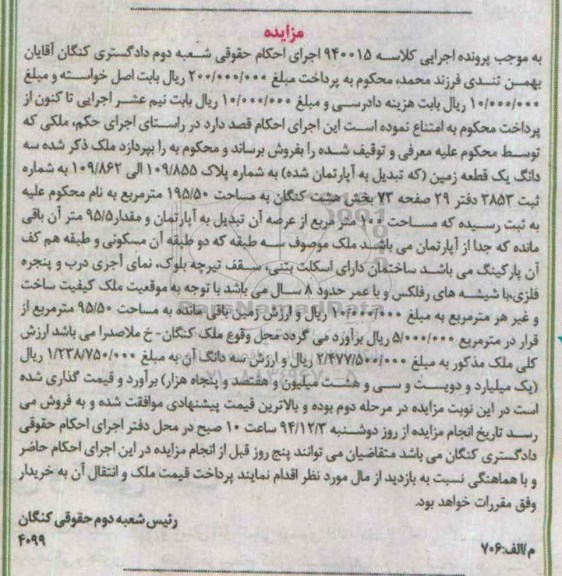 مزایده
به موجب پرونده اجرایی کلاسه ۹۴۰۰۱۵ اجرای احکام حقوقی شعبه دوم دادگستری کنگان آقایان
بهمن تندی فرزند محمد، محکوم به پرداخت مبلغ ۲۰۰/۰۰۰/۰۰۰ ریال بابت اصل خواسته و مبلغ
۱۰/۰۰۰/۰۰۰ ریال بابت هزینه دادرسی و مبلغ ۱۰/۰۰۰/۰۰۰ ریال بابت نیم عشر اجرایی تا کنون از
پرداخت محکوم به امتناع نموده است این اجرای احکام قصد دارد در راستای اجرای حکم، ملکی که
توسط محکوم علیه معرفی و توقیف شده را بفروش برساند و محکوم به را بپردازد ملک ذکر شده سه
دانگ یک قطعه زمین (که تبدیل به آپارتمان شده) به شماره پلاک ۱۰۹/۸۵۵ الی ۱۰۹/۸۶۲ به شماره
ثبت ۳۸۵۳ دفتر ۲۹ صفحه ۷۳ بخش هشت کنگان به مساحت ۱۹۵/۵۰ مترمربع به نام محکوم علیه
به ثبت رسیده که مساحت ۱۰۰ متر مربع از عرصه آن تبدیل به آپارتمان و مقدار ۹۵/۵ متر آن باقی
مانده که جدا از آپارتمان می باشد ملک موصوف سه طبقه که دو طبقه آن مسکونی و طبقه هم کف
آن پارکینگ می باشد ساختمان دارای اسکلت بتنی، سقف تیرچه بلوک، نمای آجری درب و پنجره
فلزی،با شیشه های رفلکس و با عمر حدود ۸ سال می باشد با توجه به موقعیت ملک کیفیت ساخت
و غیر هر مترمربع به مبلغ ۱۰/۰۰۰/۰۰۰ ریال و ارزش زمین باقی مانده به مساحت ۹۵/۵۰ مترمربع از
قرار در مترمربع ۵/۰۰۰/۰۰۰ ریال برآورد می گردد محل وقوع ملک کنگان-خ ملاصدرا می باشد ارزش
کلی ملک مذکور به مبلغ ۲/۴۷۷/۵۰۰/۰۰۰ ریال و ارزش سه دانگ آن به مبلغ ۱/۲۳۸/۷۵۰/۰۰۰ ریال
(یک میلیارد و دویست و سی و هشت میلیون و هفتصد و پنجاه هزار) برآورد و قیمت گذاری شده
است در این نوبت مزایده در مرحله دوم بوده و بالاترین قیمت پیشنهادی موافقت شده و به فروش می
رسد تاریخ انجام مزایده از روز دوشنبه ۹۴/۱۲/۳ ساعت ۱۰ صبح در محل دفتر اجرای احکام حقوقی
دادگستری کنگان می باشد متقاضیان می توانند پنج روز قبل از انجام مزایده در این اجرای احکام حاضر
و با هماهنگی نسبت به بازدید از مال مورد نظر اقدام نمایند پرداخت قیمت ملک و انتقال آن به خریدار
وفق مقررات خواهد بود.
رئیس شعبه دوم حقوقی کنگان
م/الف:۷۰۶
۴۰۹۹